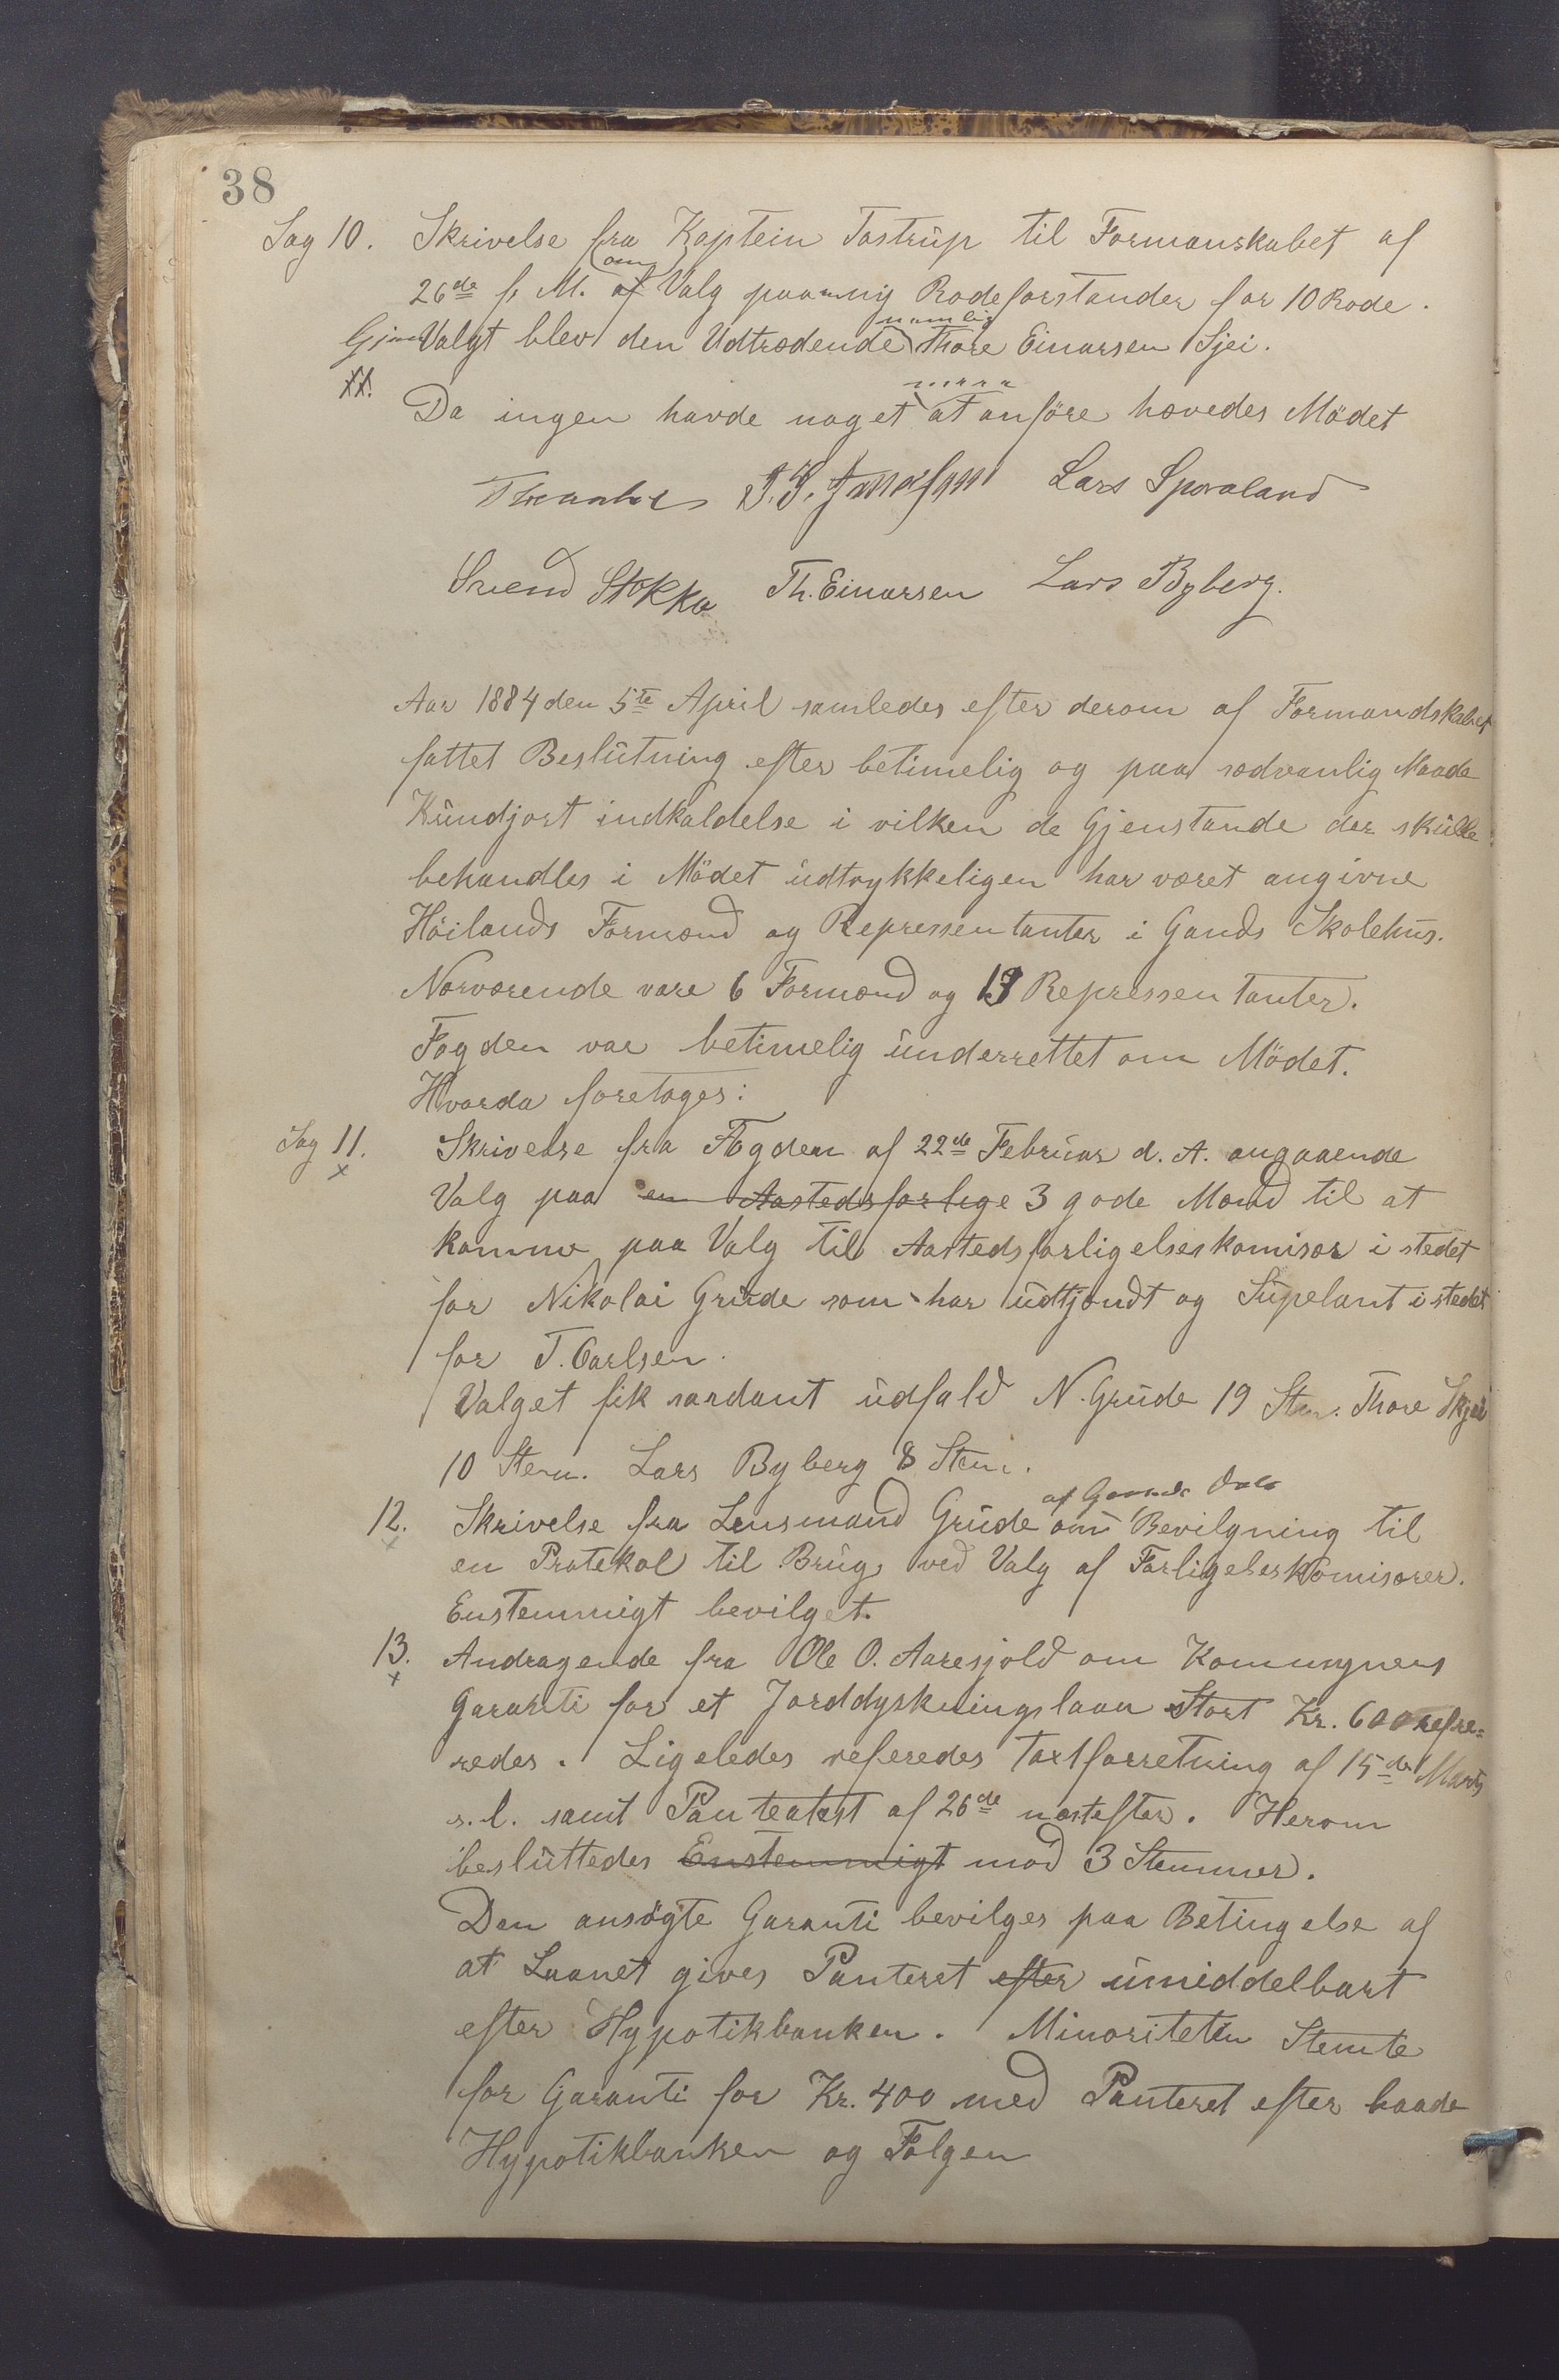 38
Sag 10. Skrivelse fra Kaptein Tostrup til Formanskabet af
26de f. M. om Valg paa ny Rodeforstander for 10 Rode.
Gjen Valgt blev den Udtrædende namlig Thore Einarsen Sjei.
Da ingen havde noget mere at anföre hævedes Mödet
Lars Sporaland
Svend Stokka Th. Einarsen Lars Byberg.
Aar 1884 den 5te April samledes efter derom af Formandskabet
fattet Beslutning efter betimelig og paa sædvanlig Maade
Kundjort indkaldelse i vilken de Gjenstande der skulle
behandles i Mödet udtrykkeligen har været angivne
Höilands Formænd og Repressentanter i Gands Skolehus.
Nærværende vare 6 Formænd og Repressentanter.
Fogden var betimelig underrettet om Mödet.
Hvorda foretages:
Sag 11. Skrivelse fra Fogden af 22de Februar d. A. angaaende
Valg paa en Aastedsforlige 3 gode Mænd til at
komme paa Valg til Aastedsforligelseskomisær i stedet
for Nikolai Grude som har udtjendt og Supelant i stedet
for T. Carlsen.
Valget fik saadant udfald N. Grude 19 Stem. Thore Skjei
10 Stem. Lars Byberg 8 Stem.
12. Skrivelse fra Lensmand Grude af om Bevilgning til
en Protekol til Brug ved Valg af Forligelseskomisærer.
Enstemmigt bevilget.
13. Andragende fra Ole O. Aaresjold om Kommunens
Garanti for et Jorddyskningslaan Stort Kr. 600 refre-
redes. Ligeledes referedes Taxtforretning af 15de Marts
s. l. samt Panteatest af 26de næstefter. Herom
besluttedes Enstemmigt mod 3 Stemmer.
Den ansögte Garanti bevilges paa Betingelse af
at Laanet gives Panteret efter umiddelbart
efter Hypotikbanken. Minoriteten Stemte
for Garanti for Kr. 400 med Panteret efter baade
Hypotikbanken og Folgen